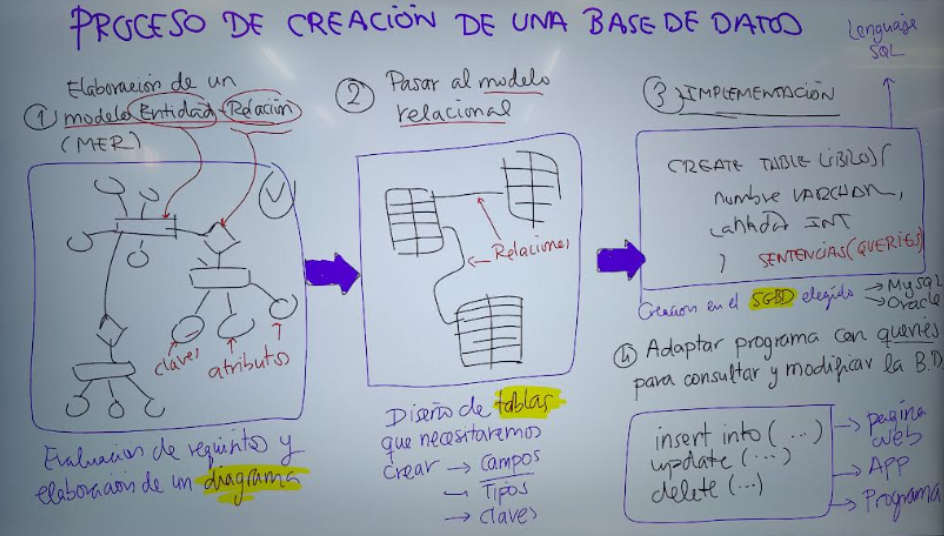 PROCESO DE CREACIÓN DE UNA BASE DE DATOS
Lenguaje
SQL
Elaboración de un
① modelo Entidad-Relación
(MER)
claves
atributos
Evaluación de requisitos y
elaboración de un diagrama
② Pasar al modelo
relacional
Relaciones
Diseño de tablas
que necesitaremos
crear → campos
→ Tipos
→ claves
③ IMPLEMENTACIÓN
CREATE TABLE LIBROS(
nombre VARCHAR,
cantidad INT
) SENTENCIAS (QUERIES)
Creación en el SGBD elegido → MySQL
→ Oracle
④ Adaptar programa con queries
para consultar y modificar la B.D
insert into (...)
update (...)
delete (...)
→ pagina
web
→ APP
→ Programa